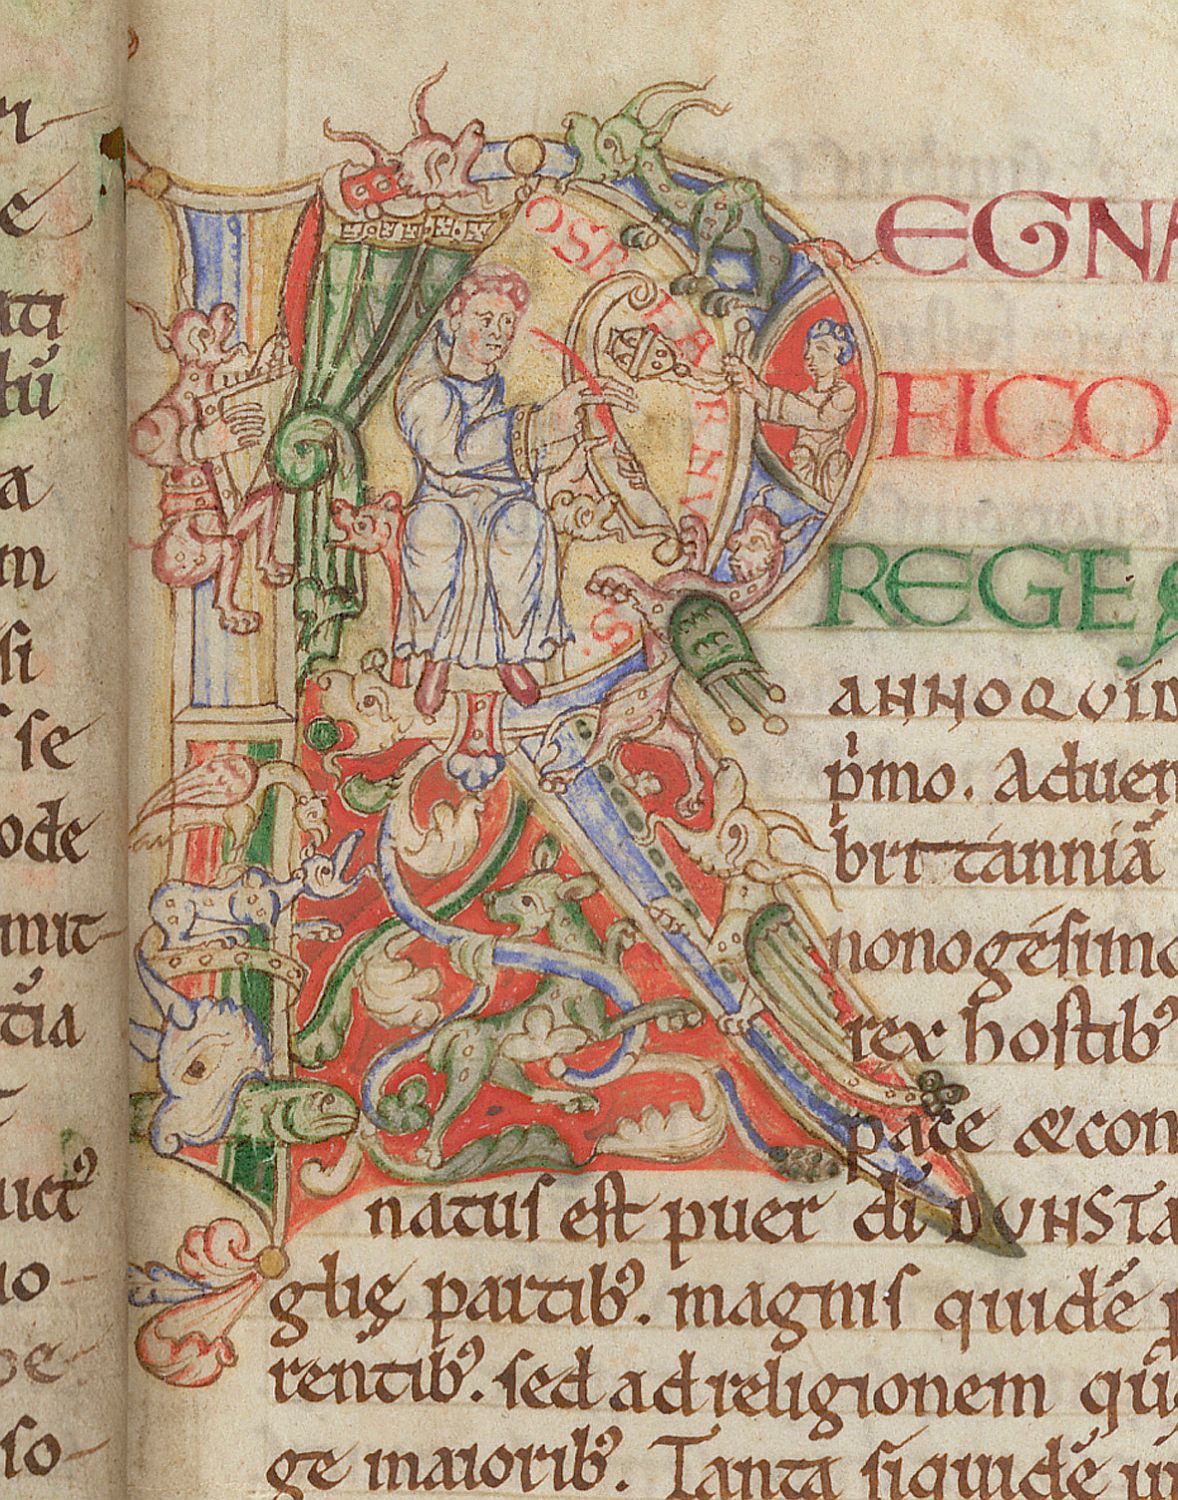 ri
e
ati
tū
a
m
si
s se
ode
mit
tia
uictꝰ
io
so
OSBEARNVS
REGNA
FICO
REGE
ANNOQVID
pͥmo. Aduen
brittanniā
nonogesimo
rex hostibꝰ
pace &con
natus est puer dī DVNSTA
glię partibꝰ. magnis quidē p
rentibꝰ. sed ad religionem
ge maioribꝰ. Tanta siquidē